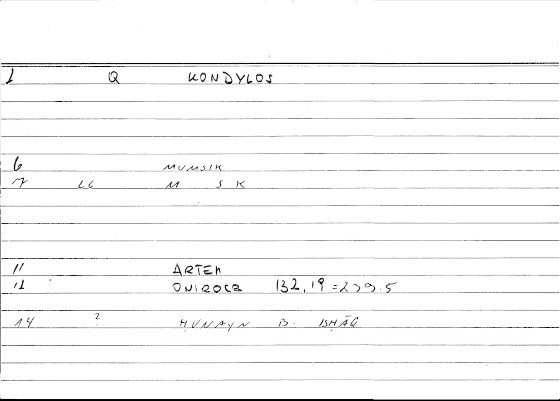 1 Q KONDYLOS
6 MUMSIK
7 LL M S K
11 ARTEM
12 ONIROCR 132,19 = 279.5
14 ? HUNAYN B. ISHĀQ